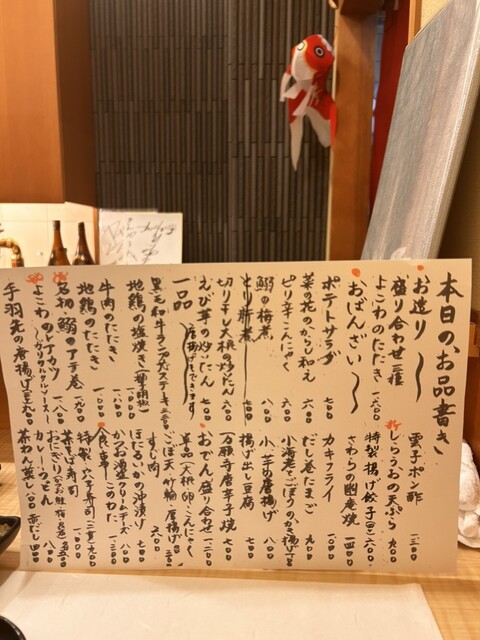 本日のお品書き
お造り
盛り合わせ三種
よこわのたたき 一、六〇〇
おばんざい
ポテトサラダ 五〇〇
菜の花のからし和え 六〇〇
ピリ辛こんにゃく
鰯の梅煮 七〇〇
切り干し大根の炒だん 六〇〇
えび芋の炒だん 七〇〇
一品
黒毛和牛ランプ肉ステーキ
地鶏の塩焼き
地鶏のたたき
牛肉のたたき
名物 鰯のアテ巻
よこわのレアカツ
手羽先の唐揚げ
雲子ポン酢 一、三〇〇
しらうおの天ぷら 九〇〇
特製揚げ餃子 六〇〇
さわらの幽庵焼 一、四〇〇
カキフライ 一、〇〇〇
だし巻たまご 九〇〇
小海老とごぼうのかき揚げ
小芋の唐揚げ 八〇〇
揚げ出し豆腐 七〇〇
万願寺唐辛子焼 七〇〇
おでん盛り合わせ 一、二〇〇
単品(大根 卵 こんにゃく
ごぼ天 竹輪 厚揚げ
すじ肉 六〇〇
ほたるいかの沖漬け 七〇〇
かつお酒盗クリームチーズ 八〇〇
このわた 一、三〇〇
食事
特製 穴子寿司
茶そば寿司 一、〇〇〇
おにぎり
カレーうどん 八〇〇
茶わん蒸し 八〇〇 赤だし 四〇〇